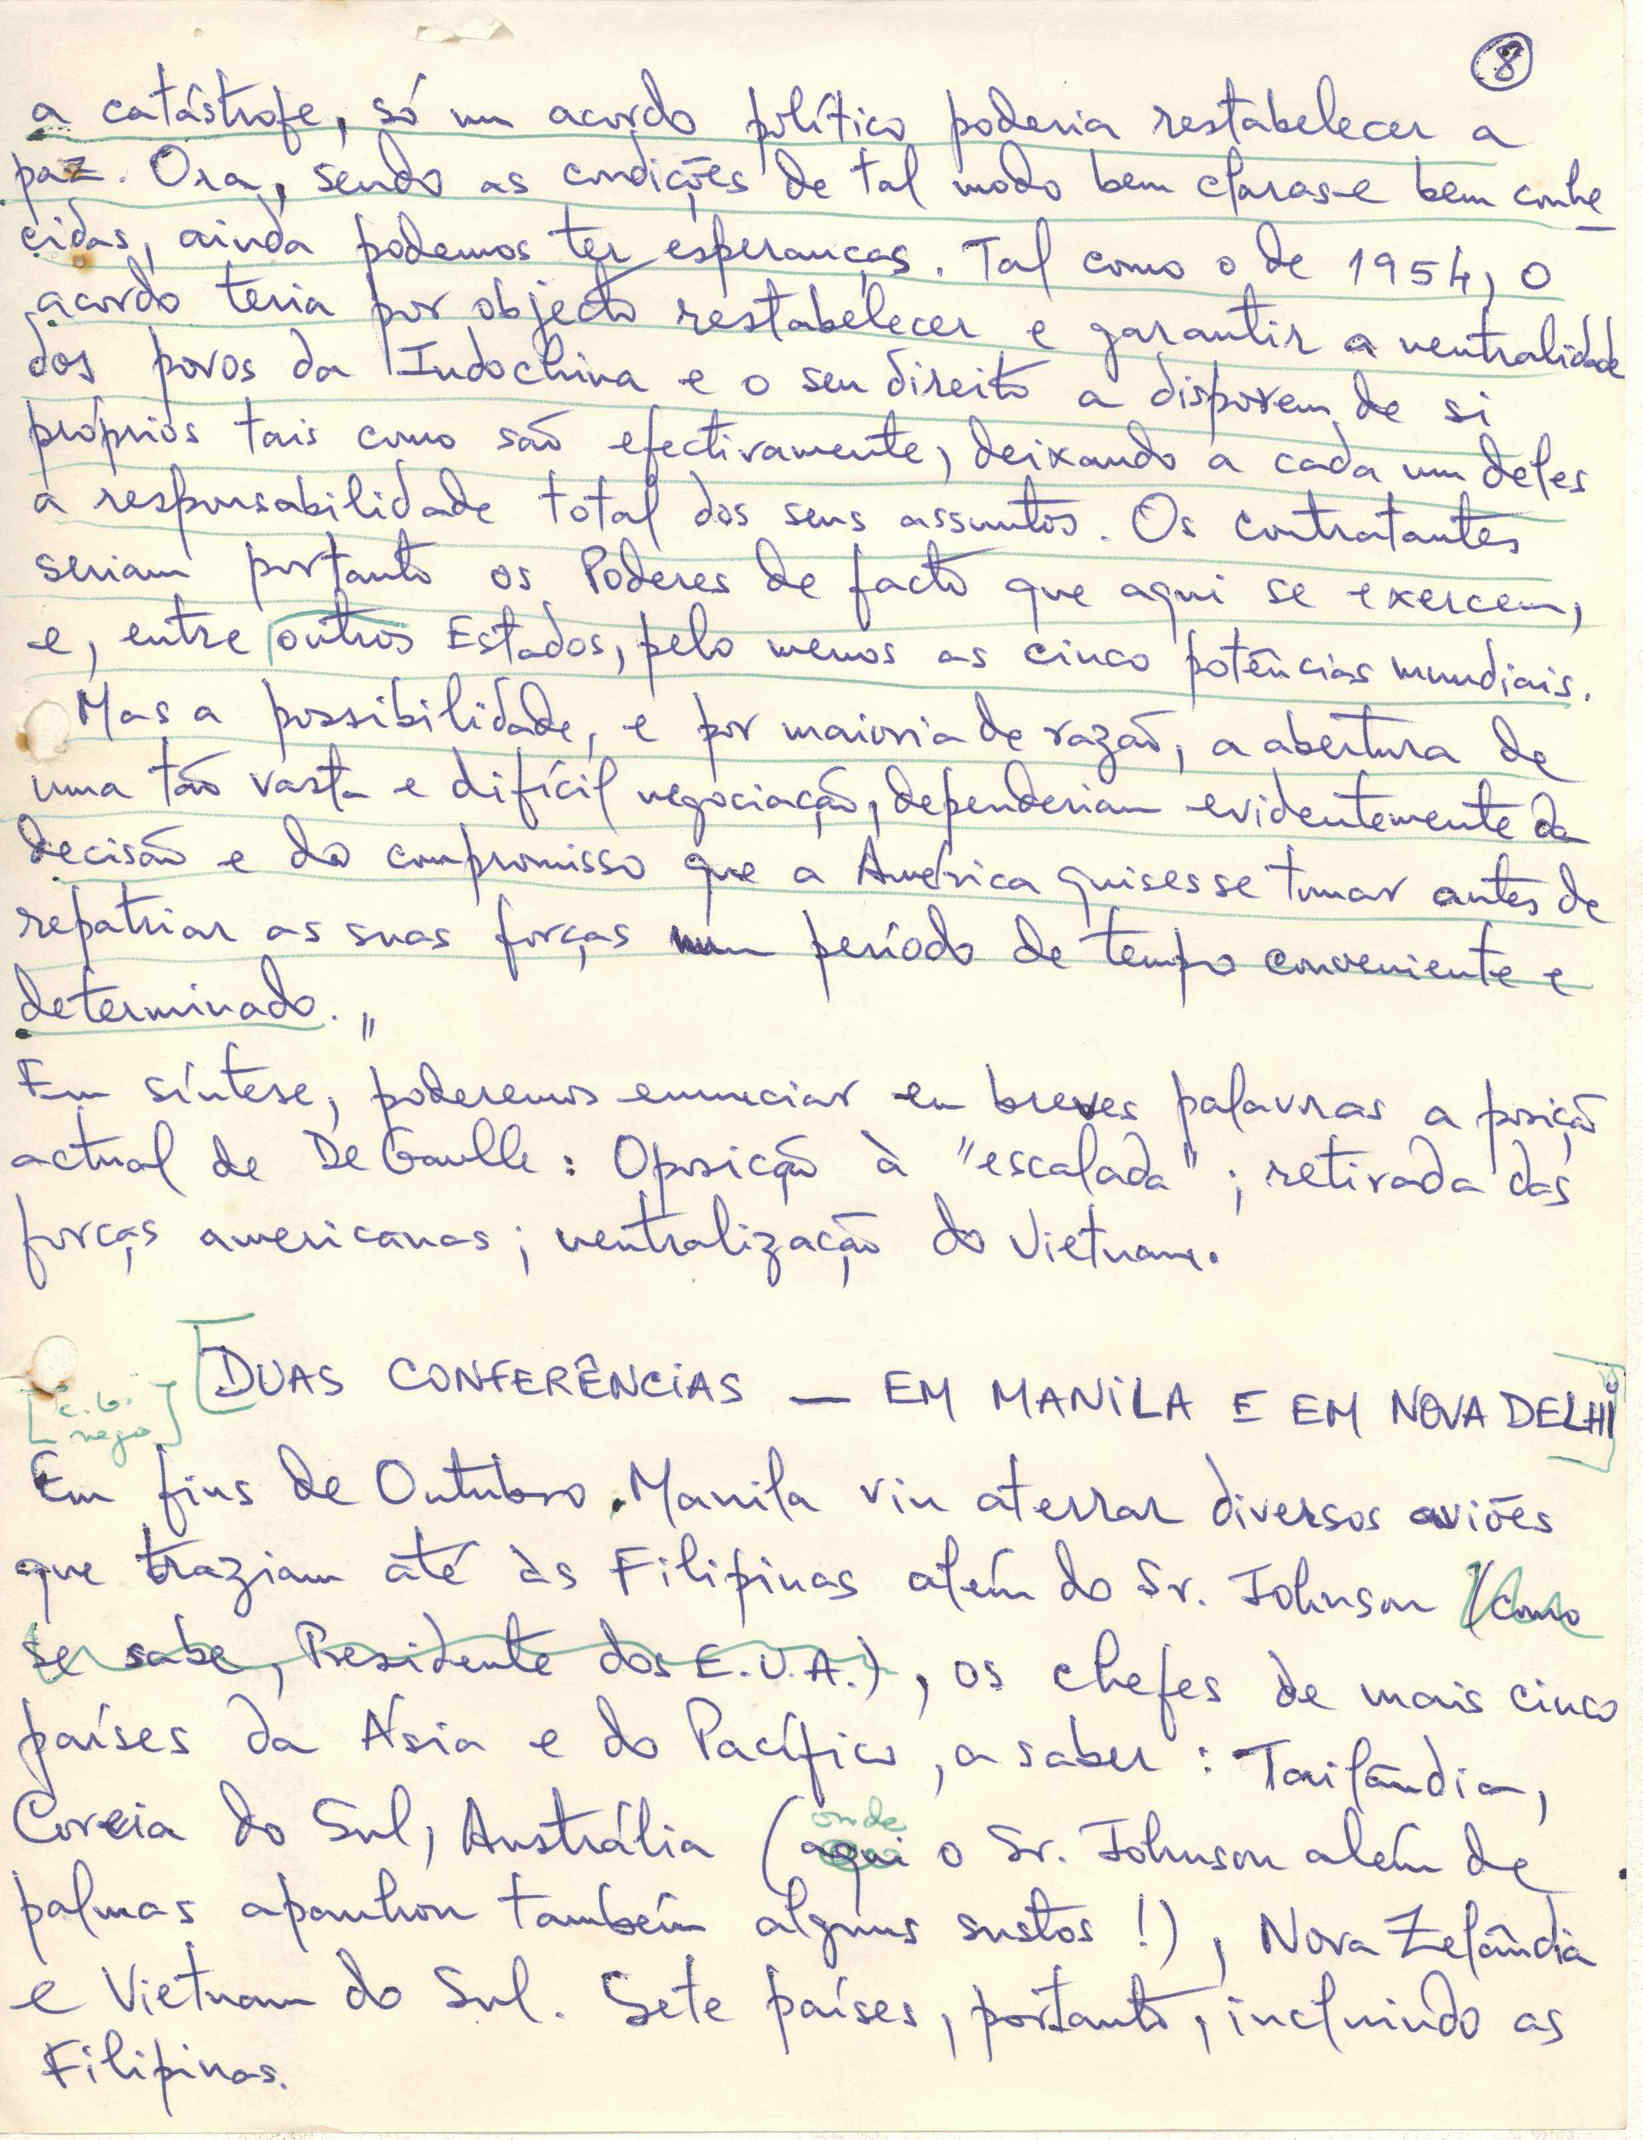 8
a catástrofe, só um acordo político poderia restabelecer a
paz. Ora, sendo as condições de tal modo bem claras e bem conhe
cidas, ainda podemos ter esperanças. Tal como o de 1954, o
acordo teria por objecto restabelecer e garantir a neutralidade
dos povos da Indochina e o seu direito a disporem de si
próprios tais como são efectivamente, deixando a cada um deles
a responsabilidade total dos seus assuntos. Os contratantes
seriam portanto os Poderes de facto que aqui se exercem,
e, entre outros Estados, pelo menos as cinco potências mundiais.
Mas a possibilidade, e por maioria de razão, a abertura de
uma tão vasta e difícil negociação, dependeriam evidentemente da
decisão e do compromisso que a América quisesse tomar antes de
repatriar as suas forças num período de tempo conveniente e
determinado."
Em síntese, poderemos enunciar em breves palavras a posição
actual de De Gaulle: Oposição à "escalada"; retirada das
forças americanas; neutralização do Vietnam.
DUAS CONFERÊNCIAS — EM MANILA E EM NOVA DELHI
[c. b. nego]
Em fins de Outubro Manila viu aterrar diversos aviões
que traziam até às Filipinas além do Sr. Johnson (como
se sabe, Presidente dos E.U.A.), os chefes de mais cinco
países da Ásia e do Pacífico, a saber: Tailândia,
onde
Coreia do Sul, Austrália (aqui o Sr. Johnson além de
palmas apanhou também alguns sustos!), Nova Zelândia
e Vietnam do Sul. Sete países, portanto, incluindo as
Filipinas.